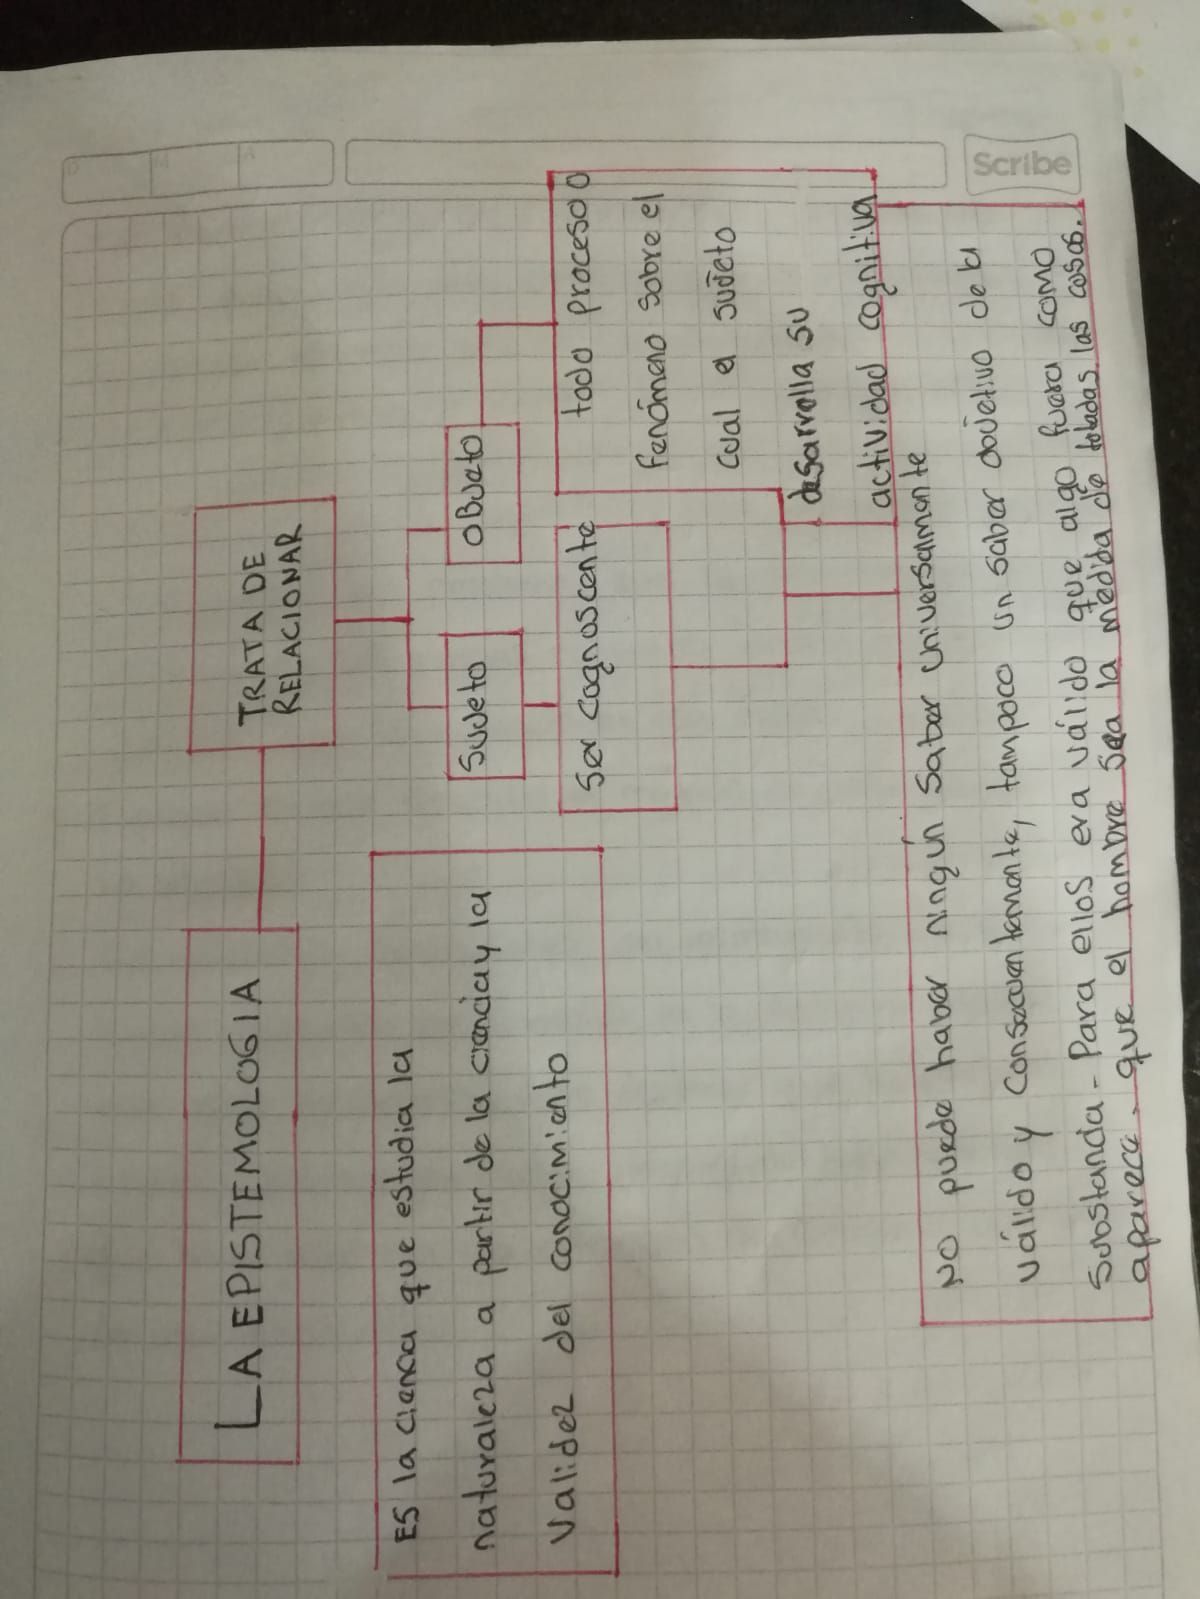 Scribe
D M A
LA EPISTEMOLOGIA
TRATA DE
RELACIONAR
ES la ciencia que estudia la
naturaleza a partir de la creencia y la
Validez del conocimiento
Sujeto
Objeto
Ser cognoscente
todo proceso o
fenómeno sobre el
cual el sujeto
desarrolla su
actividad cognitiva
No puede haber ningún saber universalmente
válido y consecuentemente, tampoco un saber objetivo de la
Substancia - Para ellos era válido que algo fuera como
aparece, que el hombre sea la medida de todas las cosas.